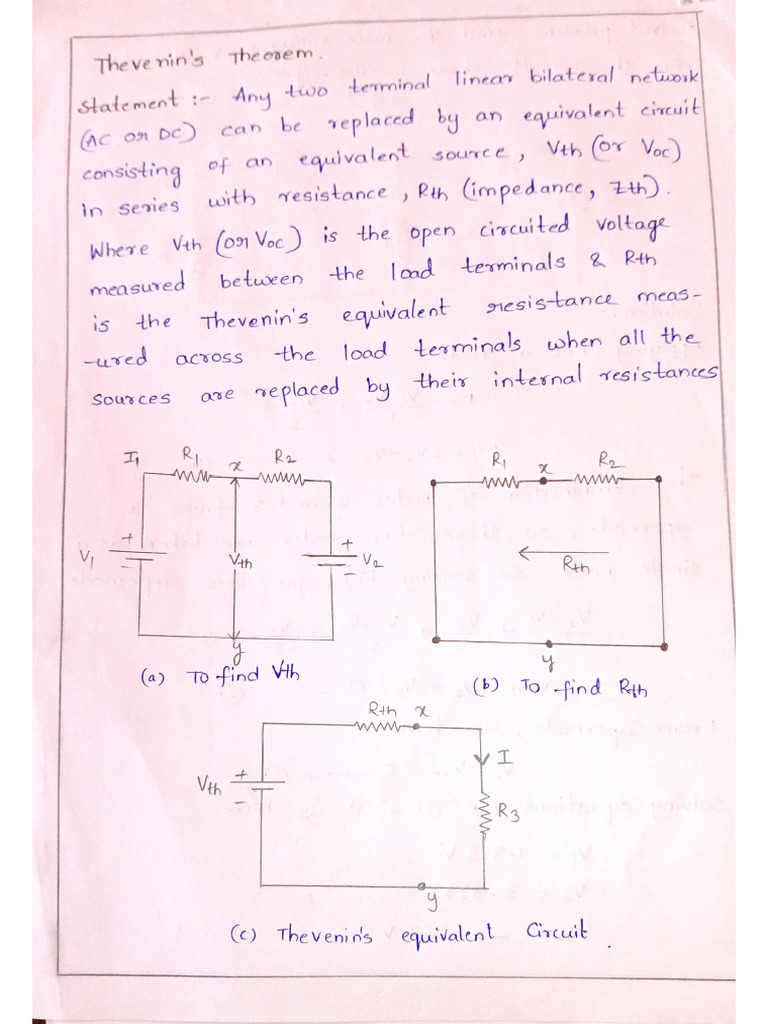 Thevenin's Theorem.
Statement :- Any two terminal linear bilateral network
(AC or DC) can be replaced by an equivalent circuit
consisting of an equivalent source, Vth (or Voc)
in series with resistance, Rth (impedance, Zth).
Where Vth (or Voc) is the open circuited voltage
measured between the load terminals & Rth
is the Thevenin's equivalent resistance meas-
-ured across the load terminals when all the
sources are replaced by their internal resistances
I1 R1 x R2
R1 x R2
V1 + - Vth + - V2
Rth
y
y
(a) To find Vth
(b) To find Rth
Rth x
I
Vth + -
R3
y
(c) Thevenin's equivalent Circuit.